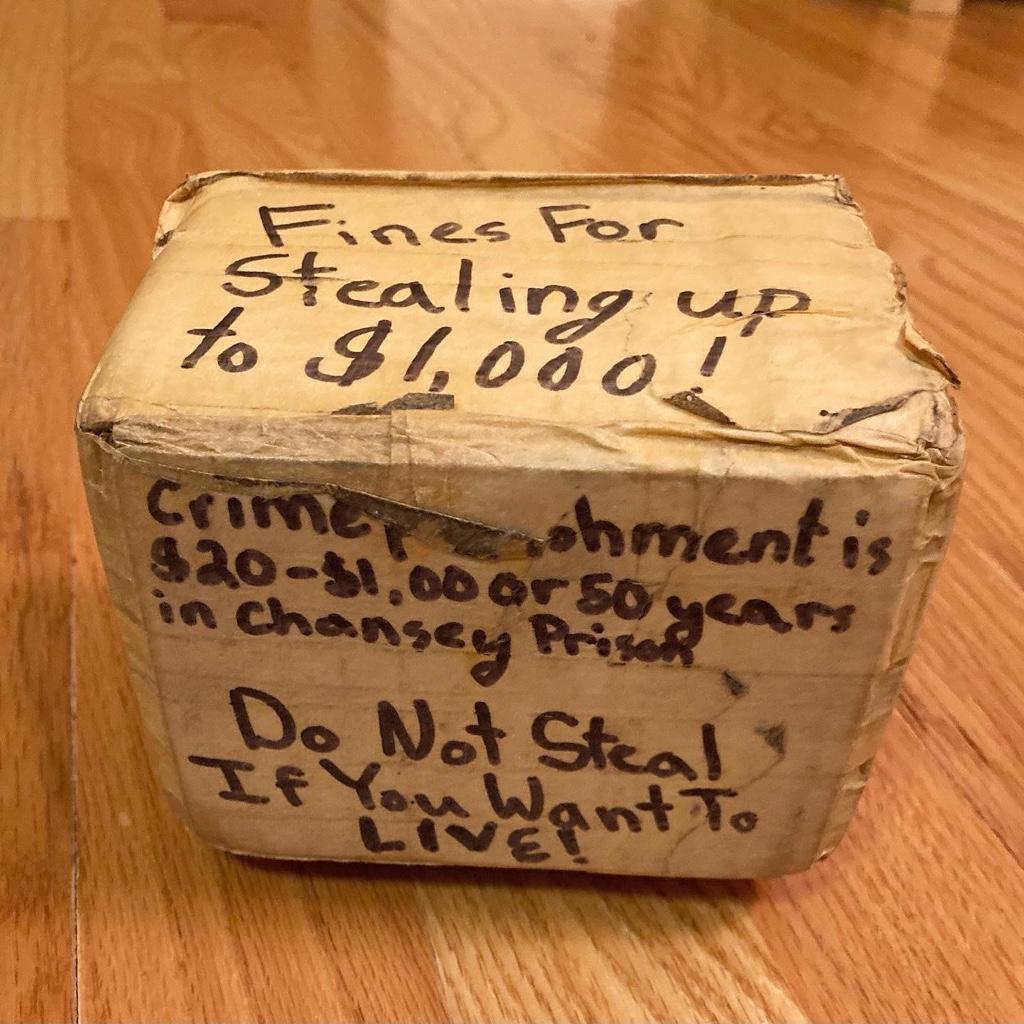 Fines For
Stealing up
to $1,000!
Crime is
$20-$1,00 or 50 years
in Chansey Prison
Do Not Steal
If You Want To
LIVE!